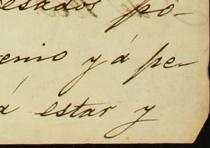 esados po-
enio y á pe-
á estar y